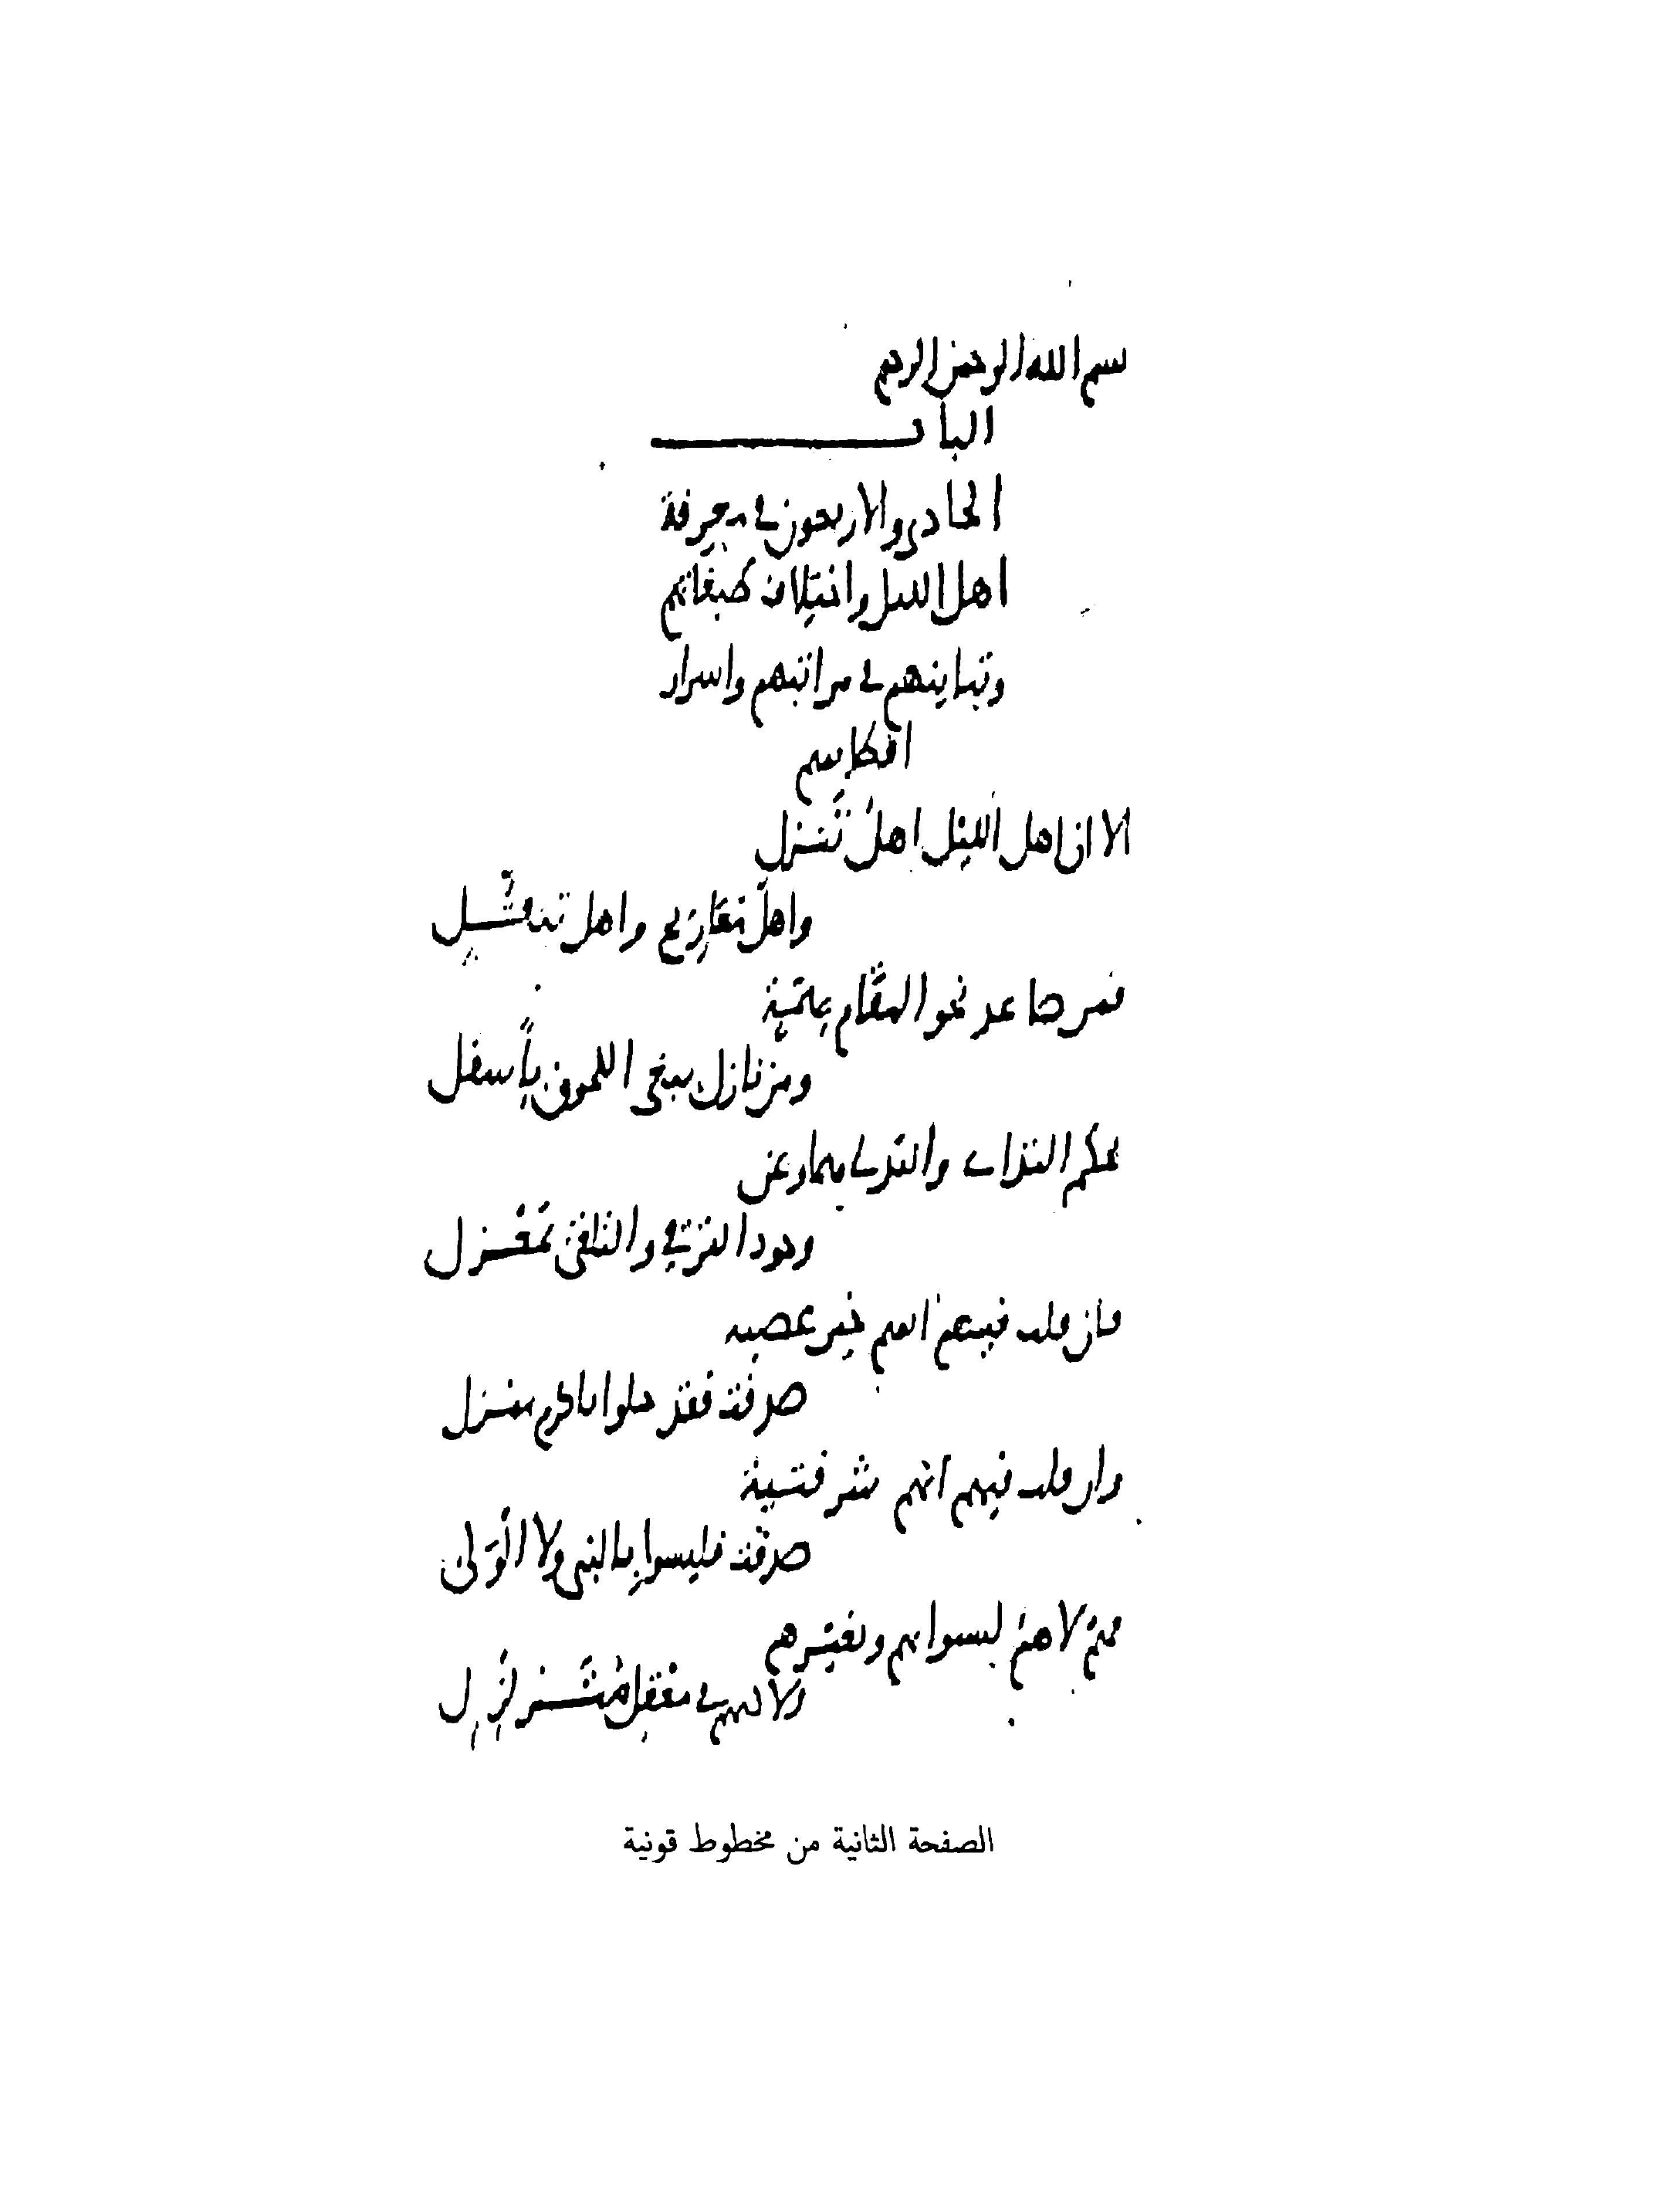 بسم الله الرحمن الرحيم
الباب
الحادي والاربعون في معرفة
اهل الليل واختلاف طبقاتهم
وتباينهم في مراتبهم واسرار
اقطابهم
الا ان اهل الليل اهل تَنَزل
واهل مَعَارِج واهل تنقّل
فمن صاعد نحو المقَام بِهمّة
ومن نازل يبغي اللحوق بأَسفل
بحكم التداني والتدلي وعن
وجود الترقي والتلقي بمَعْزل
فان قلت فيهم انهم خير عصبة
صدقت فقد حلوا باكرم منزل
وان قلت فيهم انهم شر فتية
صدقت فليسوا بالنبي ولا الوَلي
فهم لا هم ليسوا بهم وبغيرهم
ولا لهم في معْقِل
الصفحة الثانية من مخطوط قونية